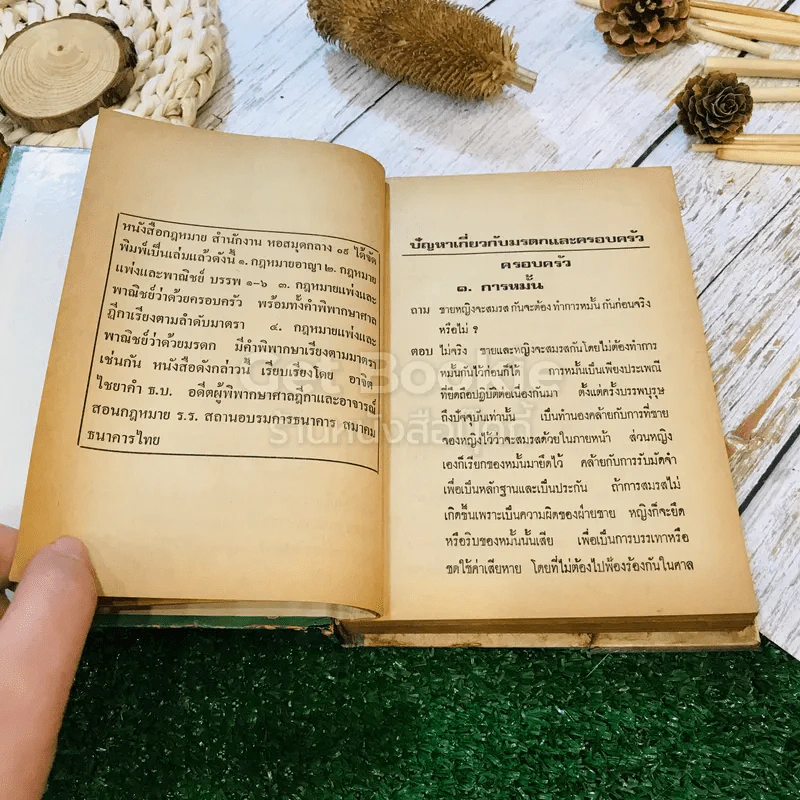 หนังสือกฎหมาย สำนักงาน หอสมุดกลาง ๐๙ ได้จัด
พิมพ์เป็นเล่มแล้วดังนี้ ๑. กฎหมายอาญา ๒. กฎหมาย
แพ่งและพาณิชย์ บรรพ ๑-๖ ๓. กฎหมายแพ่งและ
พาณิชย์ว่าด้วยครอบครัว พร้อมทั้งคำพิพากษาศาล
ฎีกาเรียงตามลำดับมาตรา ๔. กฎหมายแพ่งและ
พาณิชย์ว่าด้วยมรดก มีคำพิพากษาเรียงตามมาตรา
เช่นกัน หนังสือดังกล่าวนี้ เรียบเรียงโดย อาจิต
ไชยาคำ ธ.บ. อดีตผู้พิพากษาศาลฎีกาและอาจารย์
สอนกฎหมาย ร.ร. สถานอบรมการธนาคาร สมาคม
ธนาคารไทย
ปัญหาเกี่ยวกับมรดกและครอบครัว
ครอบครัว
๑. การหมั้น
ถาม ชายหญิงจะสมรส กันจะต้อง ทำการหมั้น กันก่อนจริง
หรือไม่ ?
ตอบ ไม่จริง ชายและหญิงจะสมรสกันโดยไม่ต้องทำการ
หมั้นกันไว้ก่อนก็ได้ การหมั้นเป็นเพียงประเพณี
ที่ยึดถือปฏิบัติต่อเนื่องกันมา ตั้งแต่ครั้งบรรพบุรุษ
ถึงปัจจุบันเท่านั้น เป็นทำนองคล้ายกับการที่ชาย
จองหญิงไว้ว่าจะสมรสด้วยในภายหน้า ส่วนหญิง
เองก็เรียกของหมั้นมายึดไว้ คล้ายกับการรับมัดจำ
เพื่อเป็นหลักฐานและเป็นประกัน ถ้าการสมรสไม่
เกิดขึ้นเพราะเป็นความผิดของฝ่ายชาย หญิงก็จะยึด
หรือริบของหมั้นนั้นเสีย เพื่อเป็นการบรรเทาหรือ
ชดใช้ค่าเสียหาย โดยที่ไม่ต้องไปฟ้องร้องกันในศาล
Get Bookie
ร้านหนังสือเก็ตบุ๊คกี้